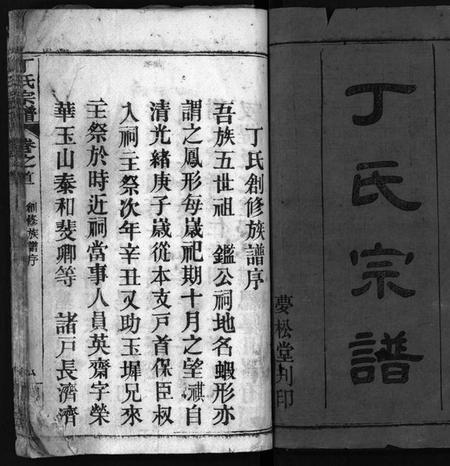 丁氏宗譜
夢松堂刋印
丁氏創修族譜序
吾族五世祖 鑑公祠地名蝦形亦
謂之鳳形每歲祀期十月之望祺自
清光緒庚子歲從本支戸首保臣叔
入祠主祭次年辛丑又助玉墀兄來
主祭於時近祠當事人員英齋字榮
華玉山泰和斐卿等 諸戸長濟濟
丁氏宗譜
卷之首
創修族譜序